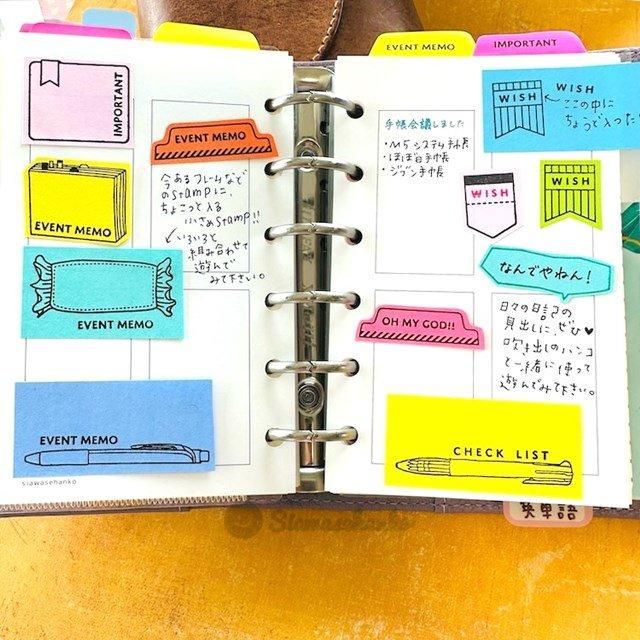 IMPORTANT
EVENT MEMO
今あるフレームなど
のstampに、
ちょこっと入る
小さめstamp!!
いろいろと
組み合わせて
遊んで
みて下さい。
EVENT MEMO
EVENT MEMO
EVENT MEMO
siawasehanko
EVENT MEMO
IMPORTANT
手帳会議しました
・M5システム手帳
・ほぼ日手帳
・ジブン手帳
WISH
WISH
ここの中に
ちょうど入った
WISH
WISH
なんでやねん!
OH MY GOD!!
日々の日記の
見出しに、ぜひ♥
吹き出しのハンコ
と一緒に使って
遊んでみて下さい。
CHECK LIST
英単語